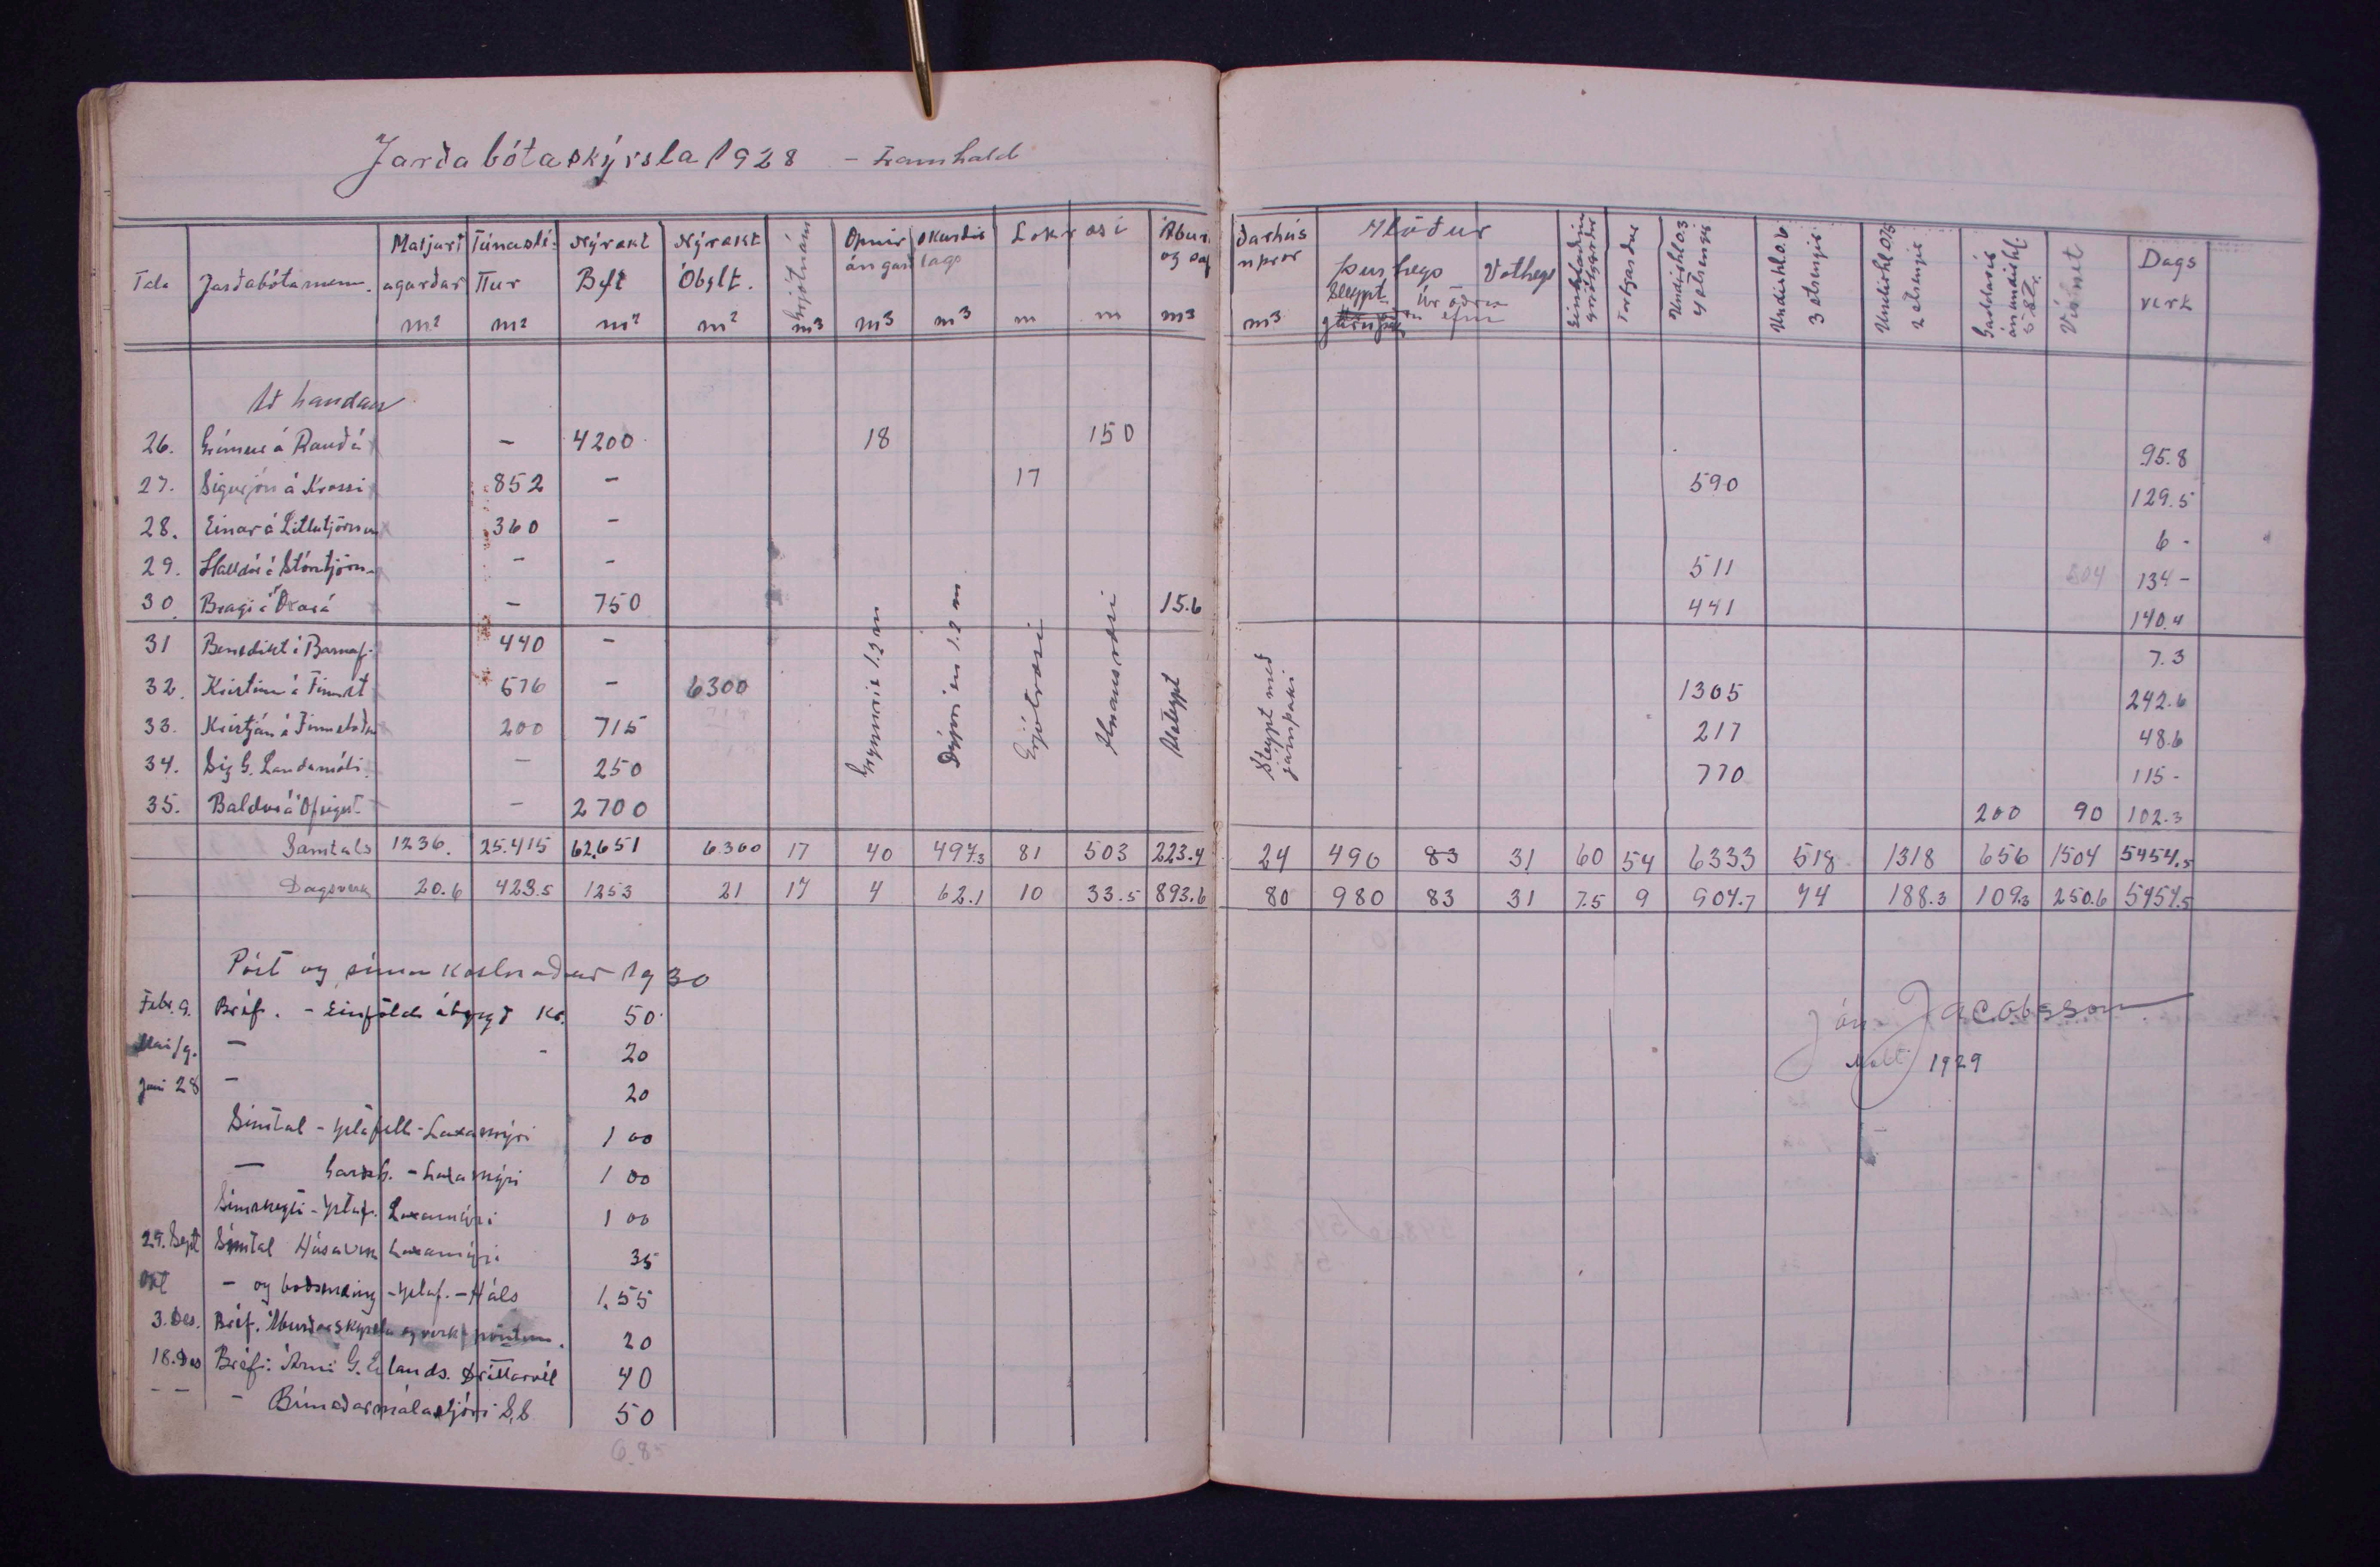 Jarðabótaskýrsla 1928 - Framhald
Tala Jarðabótamenn. Matjurt agarðar m² Túnaslé- ttur m² Nýrækt Bylt m² Nýrækt Óbylt. m² Grjótnám m³ Opnir skurðir m³ m³ Lokræsi m m Ábur og saf m³ ðarhús nþrór m³ Hlöður Þurheys Steypt Úr öðru efni Votheys Girðingar
Torfgarður Undirhl 0.3 4 strengir Undirhl 0.6 3 strengir 2 strengir Gaddavír án undirhl. Vírnet Dags verk
Að handan
26. á Rauðá - 4200 18 150 95.8
27. Sigurjón á Krossi 852 - 17 590 129.5
28. Einar á Litlutjörnum 360 - 6 -
29. Halldór á Stórutjörn. - - 511 504 134 -
30. Bragi á - 750 15.6 441 140.4
31 Benedikt á Barnaf. 440 - 7.3
32. Kristinn á Finnst 576 - 6300 1305 242.6
33. Kristján á Finnstöðum 200 715 217 48.6
34. Sig G. Landamóti. - 250 770 115 -
35. Baldur á Ófeigst. - 2700 200 90 102.3
Grynnri en 1.2 m
Dýpri en 1.2 m
Grjótræsi
Hnausræsi
Alsteypt
Steypt með járnþaki
Samtals 1236. 25.415 62.651 6300 17 40 497.3 81 503 223.4 24 490 83 31 60 54 6333 518 1318 656 1504 5454.5
Dagsverk 20.6 423.5 1253 21 17 4 62.1 10 33.5 893.6 80 980 83 31 7.5 9 904.7 74 188.3 109.3 250.6 5454.5
Póst og síma kostnaður 1930
Febr. 9. Bréf. - Einföld ábyrgð Kr. 50
Maí 19. - - 20
Júní 28 - 20
Símtal - Ystafell - Laxamýri 1 00
- - Laxamýri 1 00
Símskeyti - Ystaf. Laxamýri 1 00
29. Sept Símtal Húsavík Laxamýri 35
Okt - og boðsending - Ystaf. - Háls 1.55
3. Des. Bréf. 20
18. Des Bréf: Árni G. Eylands. Dráttarvél 40
- - - Búnaðarmálastjóri S.S 50
6.8
Jón Jacobsson
1929